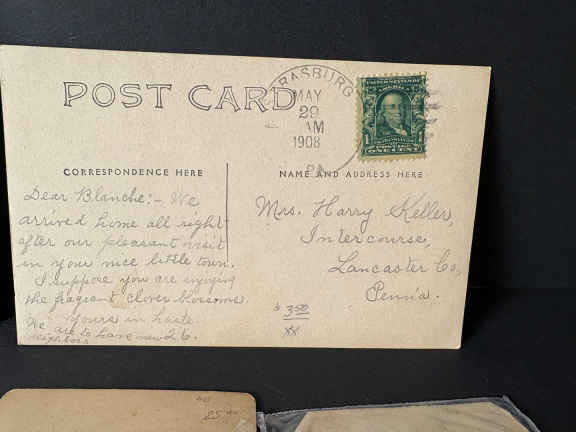 POST CARD
STRASBURG
MAY
29
AM
1908
PA.
UNITED STATES OF AMERICA
1 1
ONE CENT
CORRESPONDENCE HERE
NAME AND ADDRESS HERE
Dear Blanche:- We
arrived home all right
after our pleasant visit
in your nice little town.
I suppose you are enjoying
the fragrant clover blossoms.
Yours in haste
We are to have new
neighbors
Mrs. Harry Keller,
Intercourse,
Lancaster Co,
Penn'a.
$3.50
XX